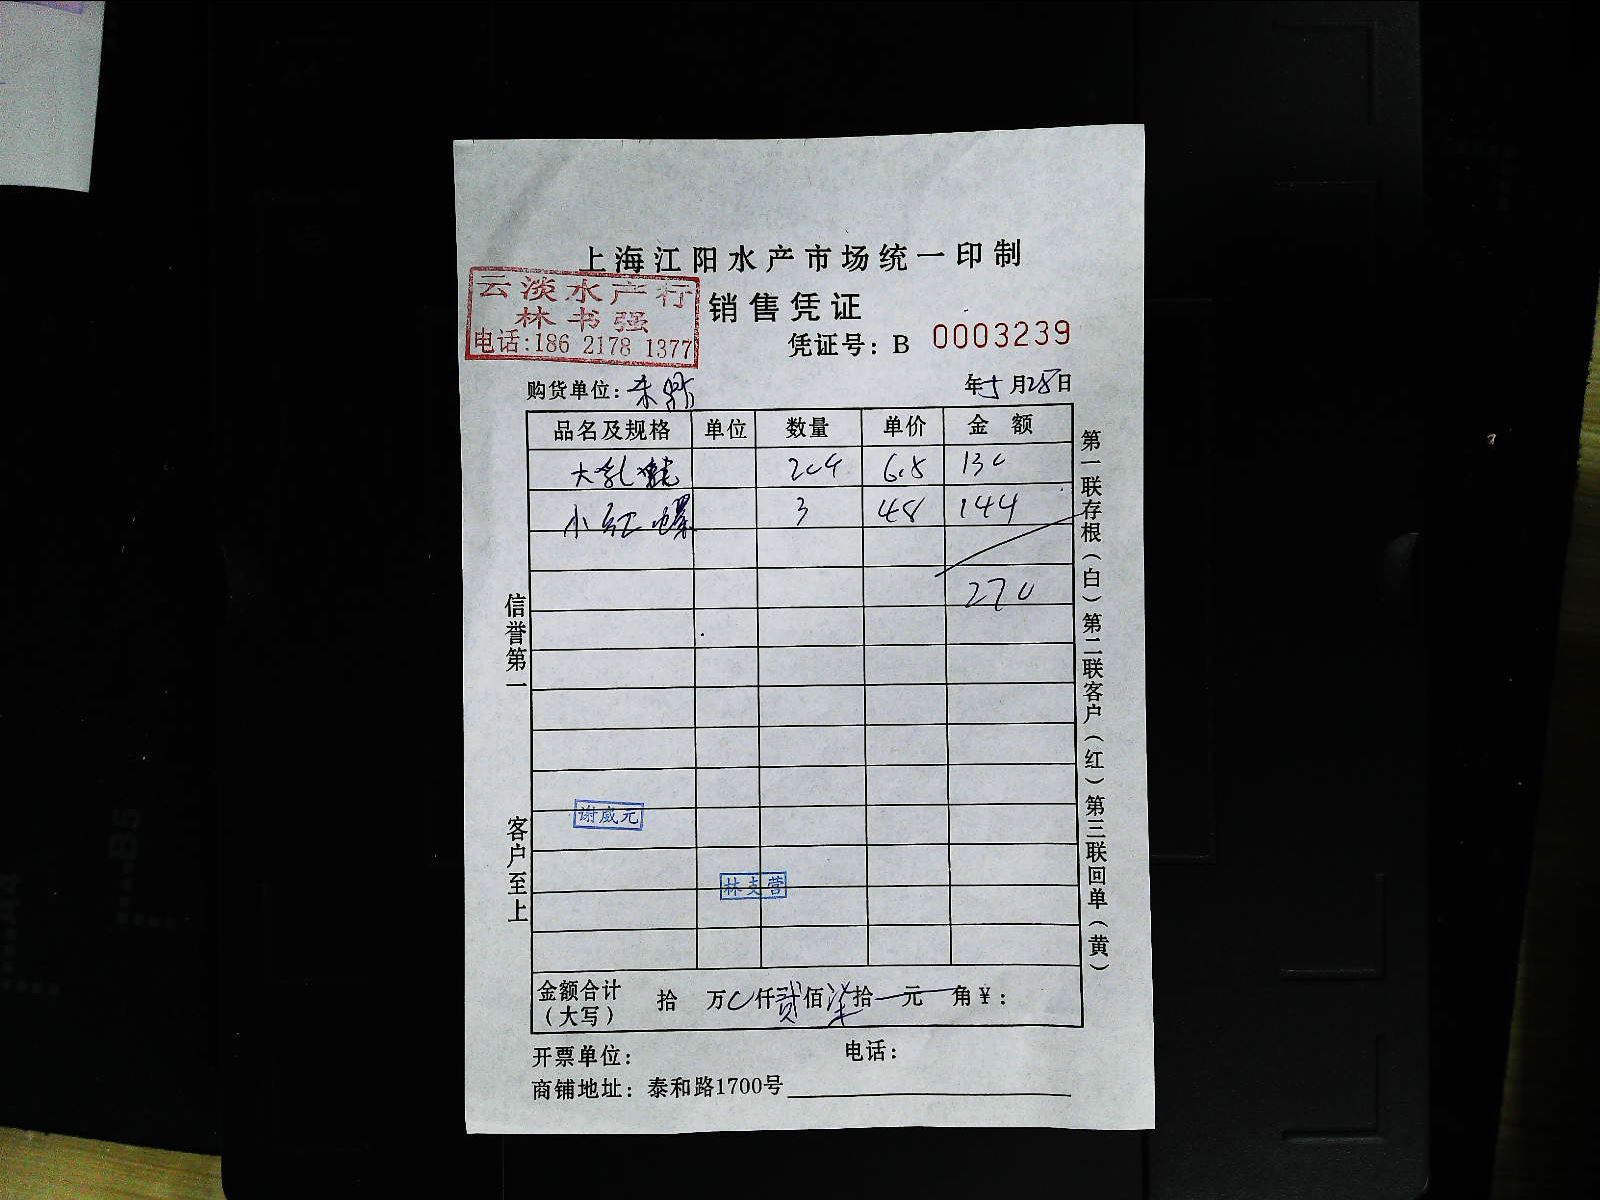 上海江阳水产市场统一印制
云淡水产行
林书强
电话:186 2178 1377
销售凭证
凭证号：B 0003239
购货单位：
年5月28日
品名及规格 单位 数量 单价 金额
大 204 6.5 130
小红螺 3 48 144
270
信誉第一
客户至上
谢威元
林支营
金额合计（大写） 拾 万0仟贰佰柒拾 元 角¥：
开票单位： 电话：
商铺地址：泰和路1700号
第一联存根（白）第二联客户（红）第三联回单（黄）